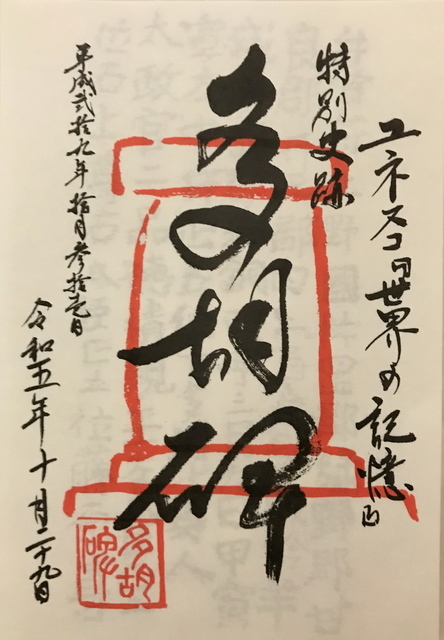 ユネスコ「世界の記憶」
特別史跡
多胡碑
平成弐拾九年拾月参拾壱日
令和五年十月二十九日
多胡
碑